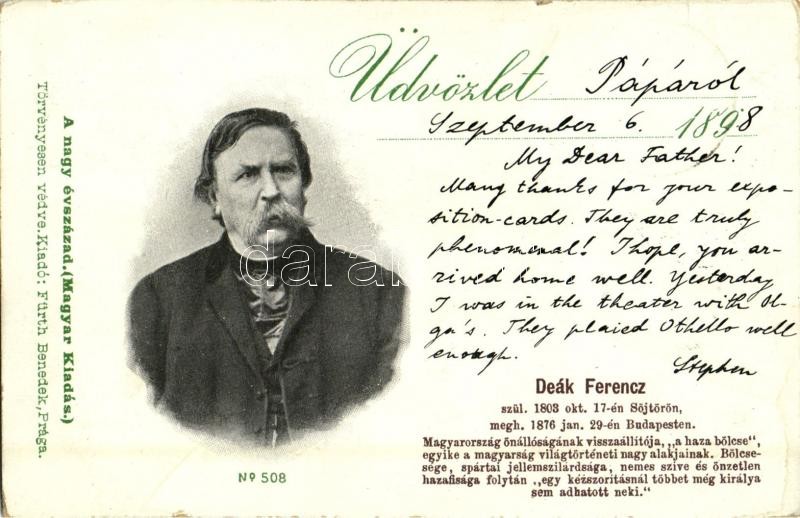 Üdvözlet Pápáról
Szeptember 6. 1898
My Dear Father!
Many thanks for your expo-
sition-cards. They are truly
phenomenal! I hope, you ar-
rived home well. Yesterday
I was in the theater with Ol-
ga's. They plaied Othello well
enough.
Stephen
Deák Ferencz
szül. 1803 okt. 17-én Söjtörön,
megh. 1876 jan. 29-én Budapesten.
Magyarország önállóságának visszaállítója, „a haza bölcse“,
egyike a magyarság világtörténeti nagy alakjainak. Bölcse-
sége, spártai jellemszilárdsága, nemes szive és önzetlen
hazafisága folytán „egy kézszoritásnál többet még királya
sem adhatott neki.“
A nagy évszázad.(Magyar Kiadás.)
Törvényesen védve.Kiadó: Fürth Benedek,Prága.
Nº 508
darabanth